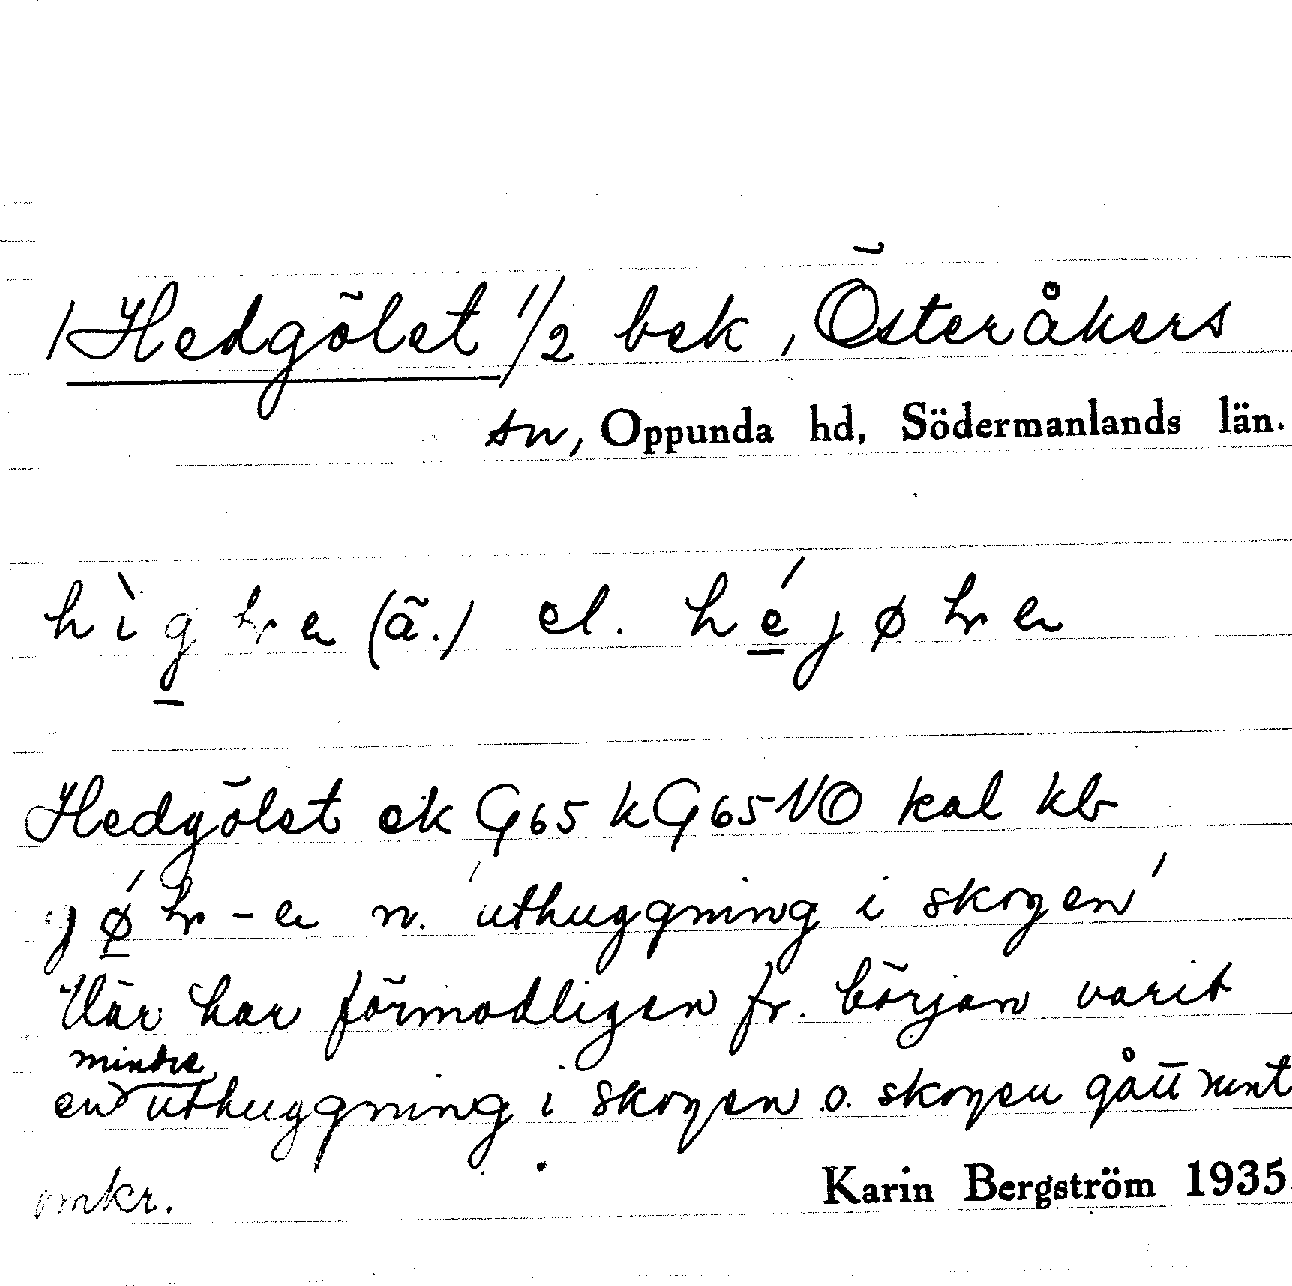 /Hedgölet 1/2 bek, Österåkers
sn, Oppunda hd, Södermanlands län.
(ä.) el.
Hedgölet ek G65 k G65 NO kal kb
n. 'uthuggning i skogen'
Där har förmodligen fr. början varit
en mindre uthuggning i skogen o. skogen gått runt
omkr. Karin Bergström 1935